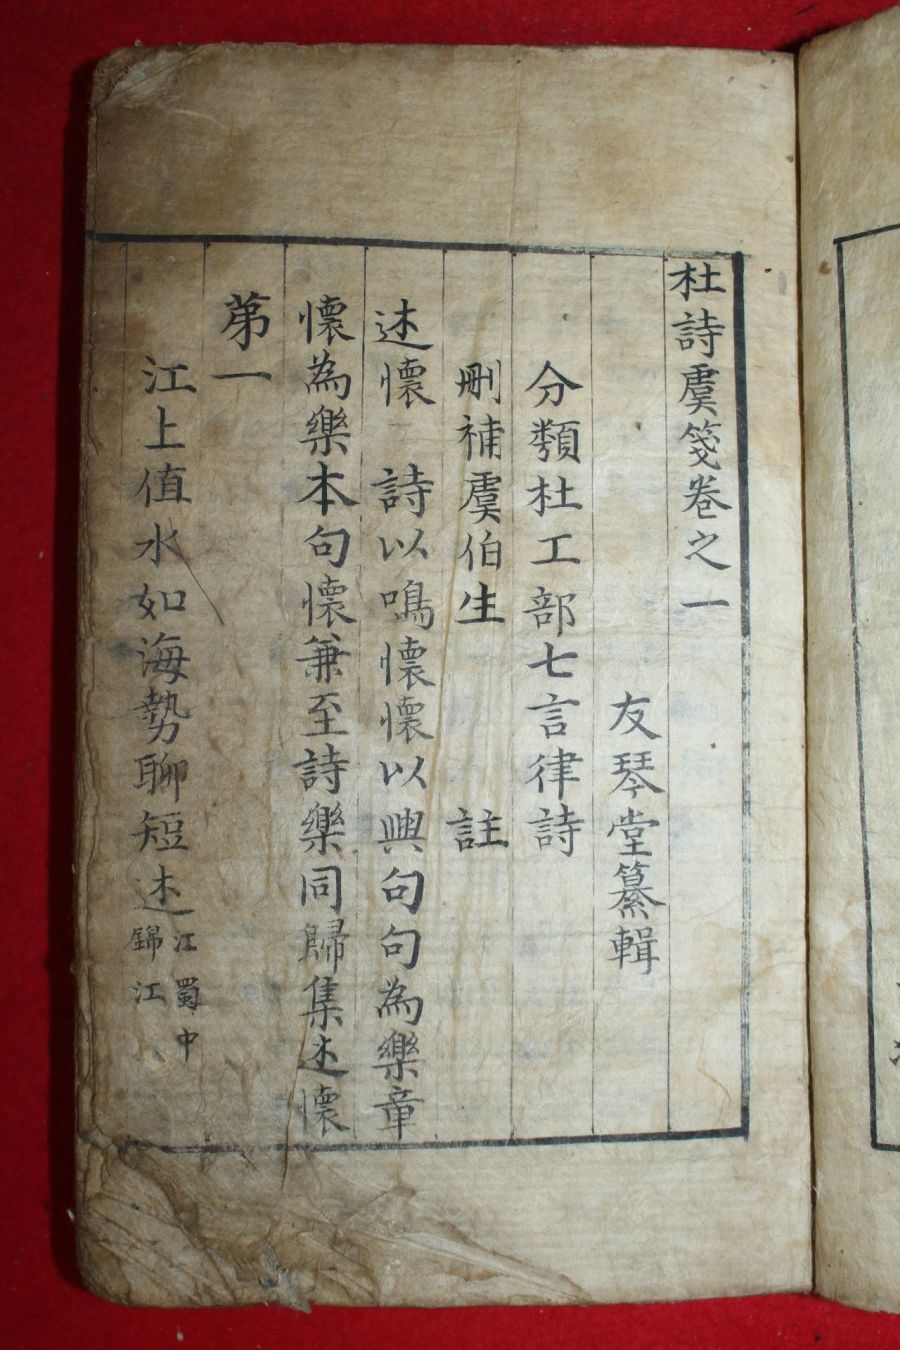 杜詩虞箋卷之一
友琴堂纂輯
分類杜工部七言律詩
刪補虞伯生 註
述懷 詩以鳴懷懷以興句句為樂章
懷為樂本句懷兼至詩樂同歸集述懷
苐一
江上值水如海勢聊短述 江蜀中錦江